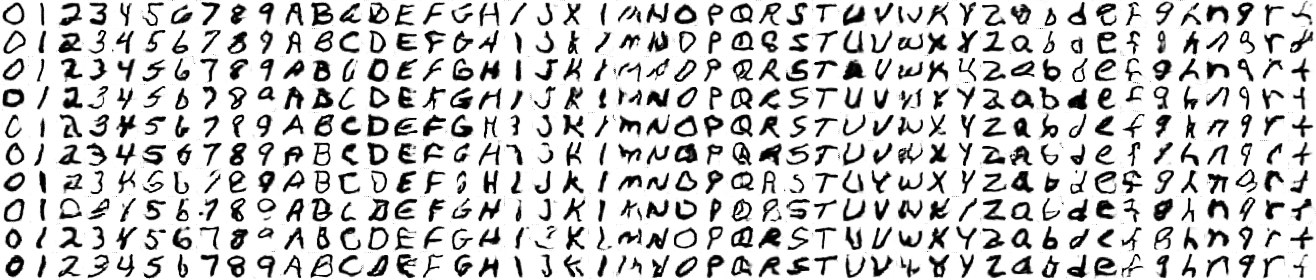 0123456789ABCDEFGHIJKlmNOPQRSTUVWXYZabdefghnqrt
0123456789ABCDEFGHIJKlmNOPQRSTUVWXYZabdefghnqrt
0123456789ABCDEFGHIJKlmNOPQRSTUVWXYZabdefghnqrt
0123456789ABCDEFGHIJKlmNOPQRSTUVWXYZabdefghnqrt
0123456789ABCDEFGHIJKlmNOPQRSTUVWXYZabdefghnqrt
0123456789ABCDEFGHIJKlmNOPQRSTUVWXYZabdefghnqrt
0123456789ABCDEFGHIJKlmNOPQRSTUVWXYZabdefghnqrt
0123456789ABCDEFGHIJKlmNOPQRSTUVWXYZabdefghnqrt
0123456789ABCDEFGHIJKlmNOPQRSTUVWXYZabdefghnqrt
0123456789ABCDEFGHIJKlmNOPQRSTUVWXYZabdefghnqrt